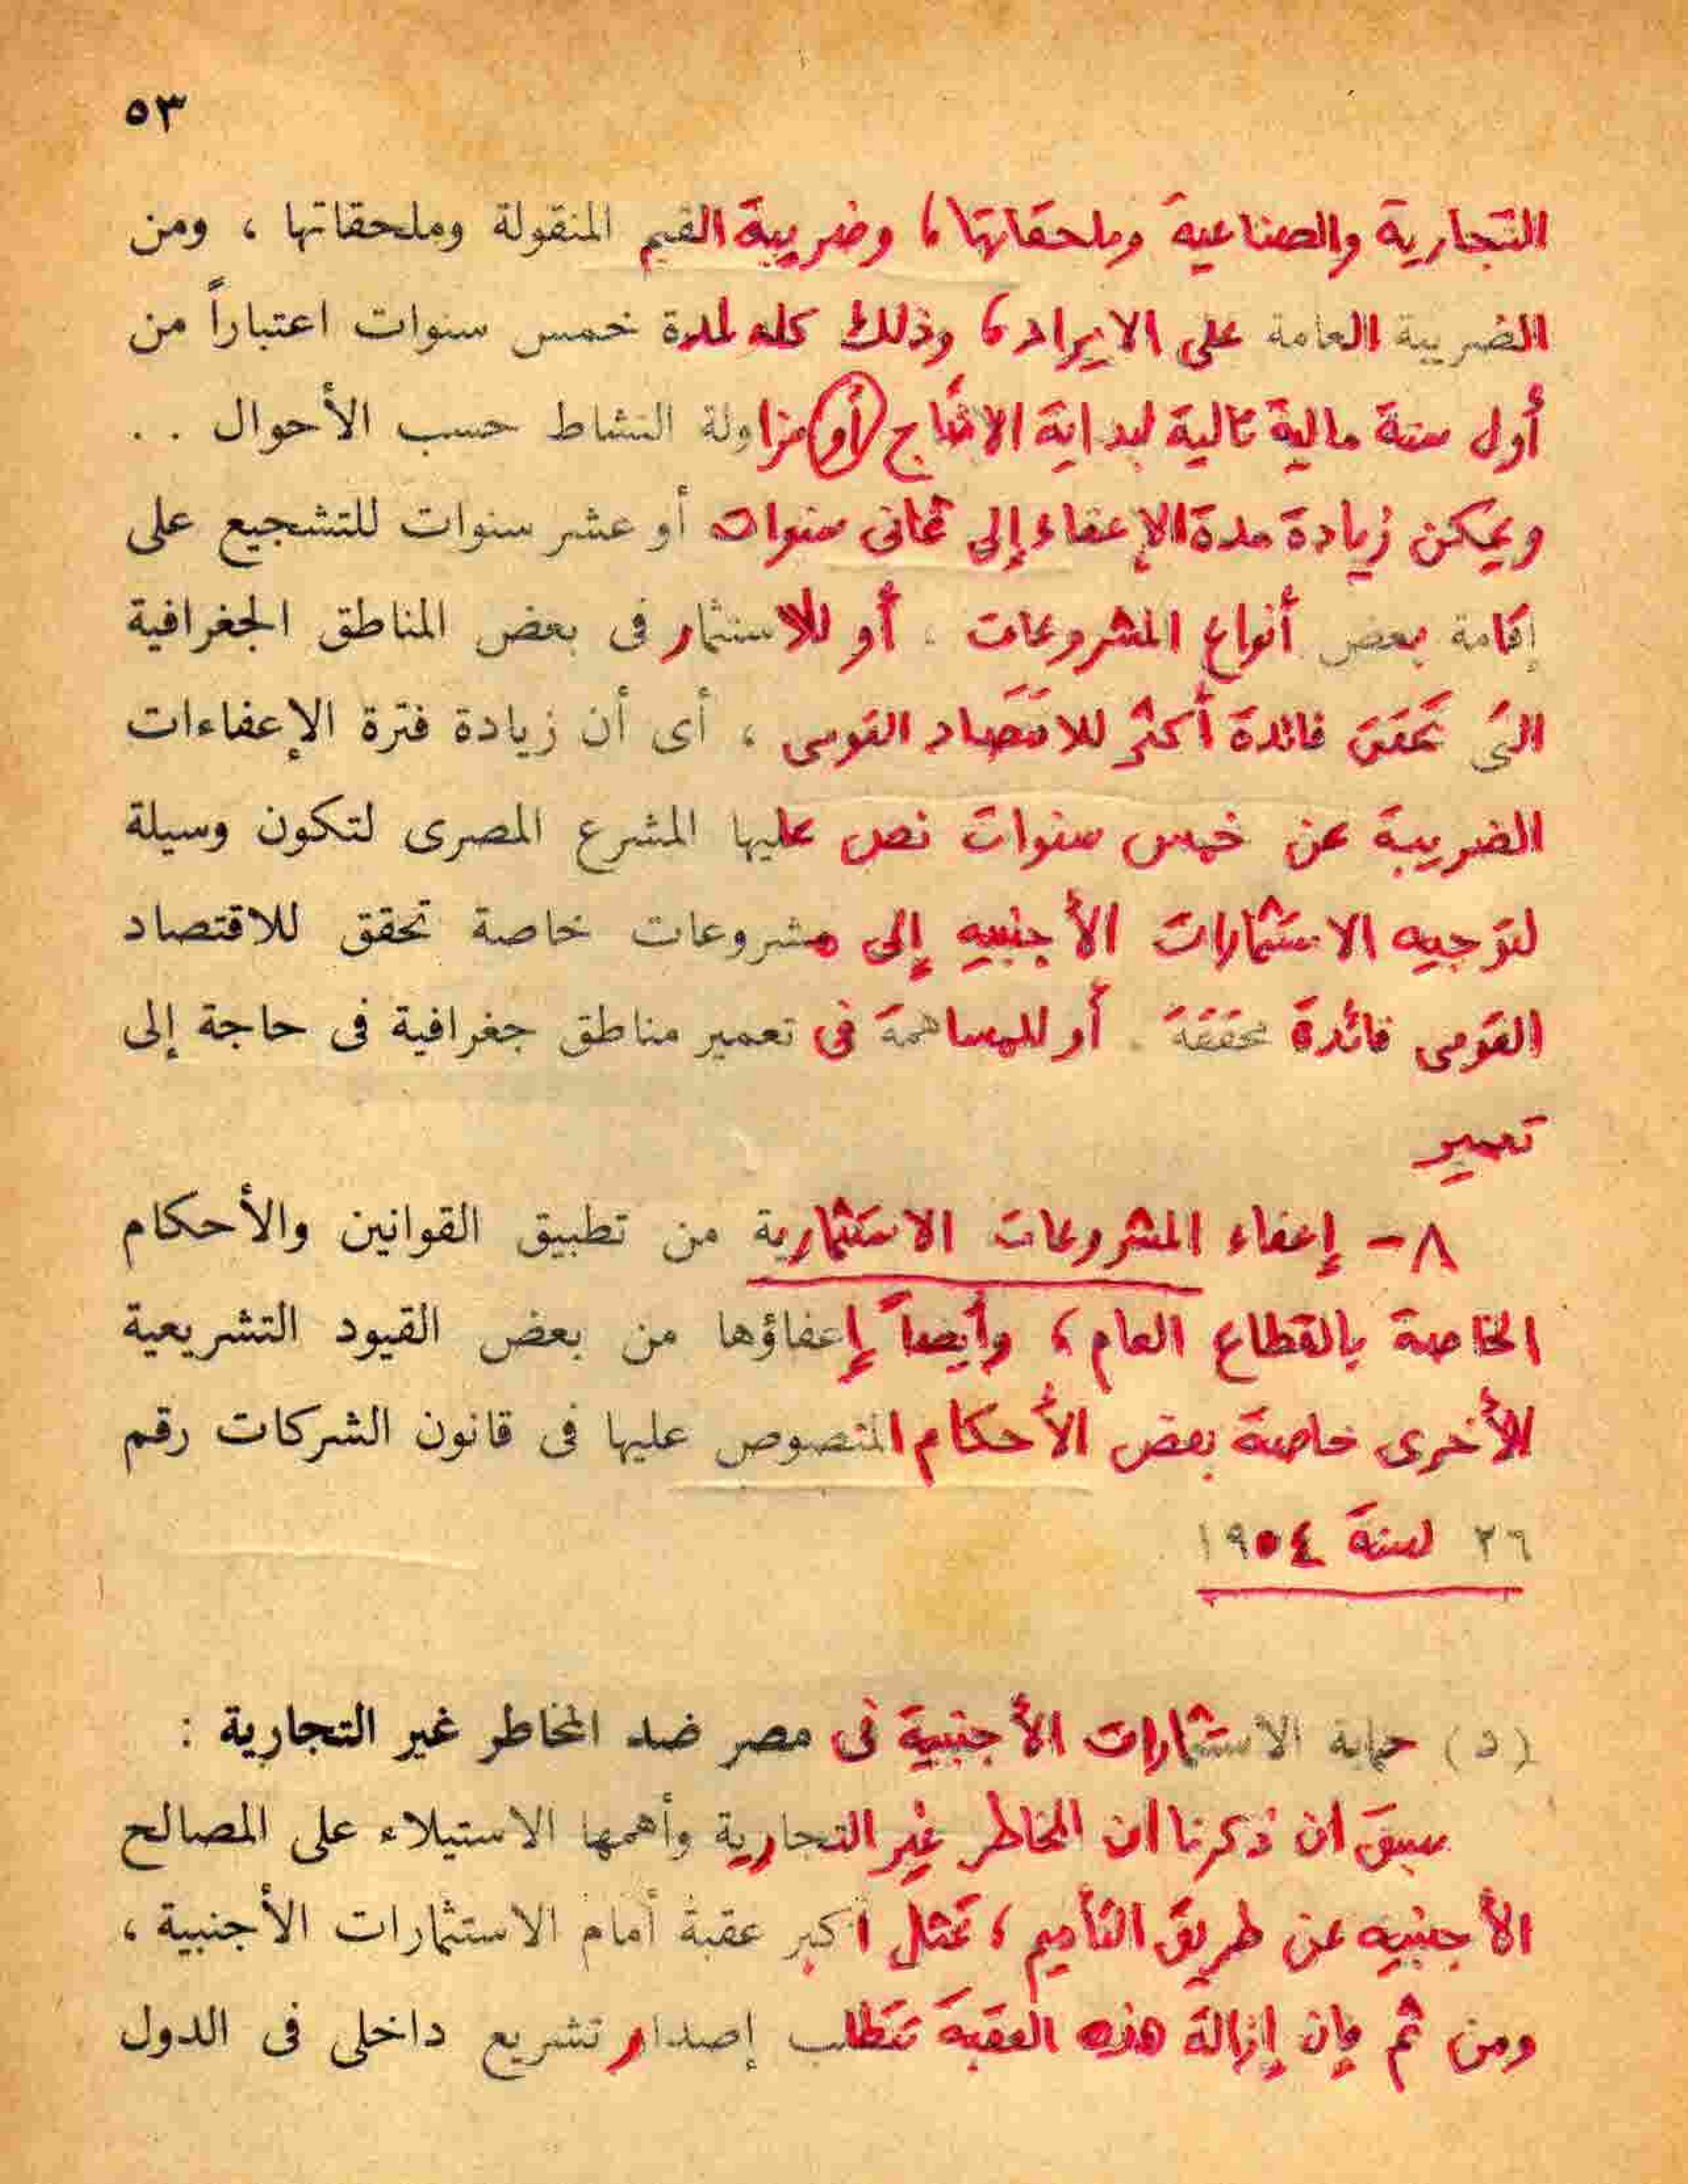 ٥٣
التجارية والصناعية وملحقاتها ، وضريبة القيم المنقولة وملحقاتها ، ومن
الضريبة العامة على الايراد ، وذلك كله لمدة خمس سنوات اعتباراً من
أول سنة مالية تالية لبداية الانتاج أو مزاولة النشاط حسب الأحوال . .
ويمكن زيادة مدة الإعفاء إلى ثمانى سنوات أو عشر سنوات للتشجيع على
إقامة بعض أنواع المشروعات ، أو للاستثمار فى بعض المناطق الجغرافية
التى تحقق فائدة أكثر للاقتصاد القومى ، أى أن زيادة فترة الإعفاءات
الضريبة عن خمس سنوات نص عليها المشرع المصرى لتكون وسيلة
لتوجيه الاستثمارات الأجنبيه إلى مشروعات خاصة تحقق للاقتصاد
القومى فائدة محققة . أو للمساهمة فى تعمير مناطق جغرافية فى حاجة إلى
تعمير
٨ – إعفاء المشروعات الاستثمارية من تطبيق القوانين والأحكام
الخاصة بالقطاع العام ؛ وأيضاً إعفاؤها من بعض القيود التشريعية
للأخرى خاصة بعض الأحكام المنصوص عليها فى قانون الشركات رقم
٢٦ لسنة ١٩٥٤
( د ) حماية الاستثمارات الأجنبية فى مصر ضد المخاطر غير التجارية :
سبق ان ذكرنا ان المخاطر غير التجارية وأهمها الاستيلاء على المصالح
الأجنبيه عن طريق التأميم ؛ تمثل اكبر عقبة أمام الاستثمارات الأجنبية ،
ومن ثم فإن إزالة هذه العقبة تتطلب إصدار تشريع داخلى فى الدول